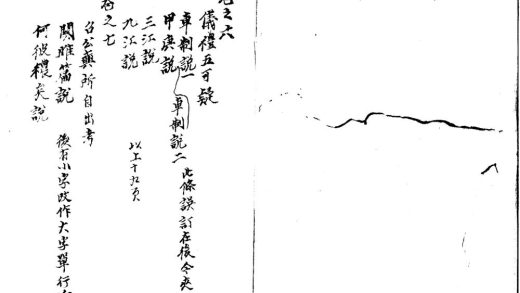 之六
儀禮五可疑
車制說一 車制說二 此條誤訂在後今夾
甲庚說
三江說
九江說 以上十九頁
之七
召公奭所自出考
關雎篇說 後有小字改作大字單行
何彼穠矣說